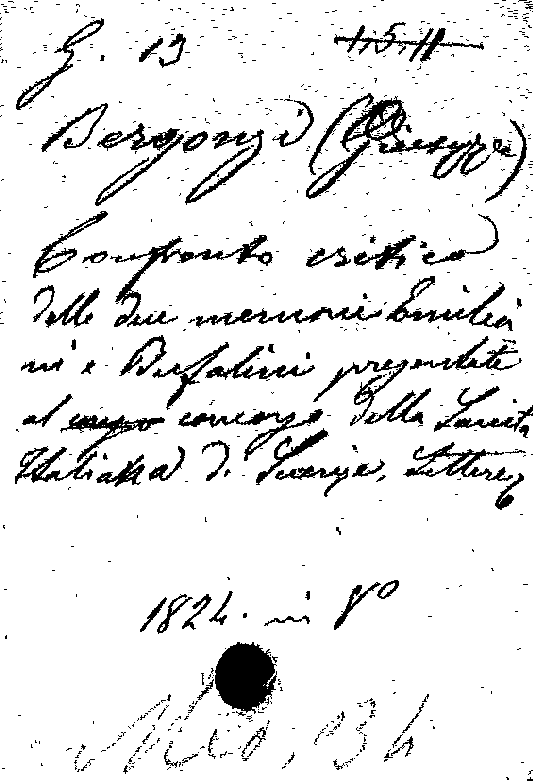 G. 13 1,5,11
Bergonzi (Giuseppe)
Confronto critico
delle due memorie Emilia
ni e Bufalini presentate
al concorso della Società
Italiana di Scienze, Lettere
1824. in 8º
Med, 34